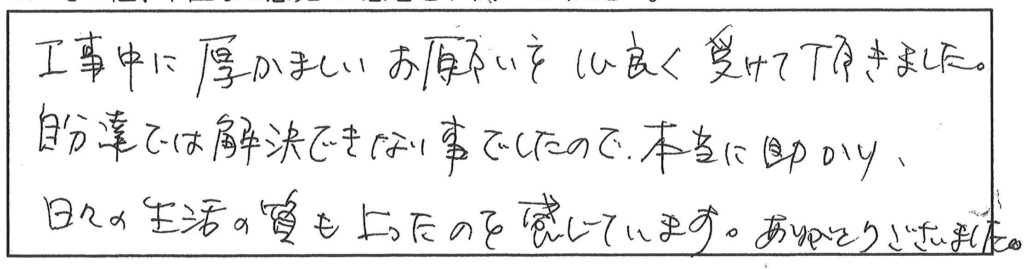 工事中に厚かましいお願いを心良く受けて頂きました。
自分達では解決できない事でしたので、本当に助かり、
日々の生活の質も上ったのを感じています。ありがとうございました。